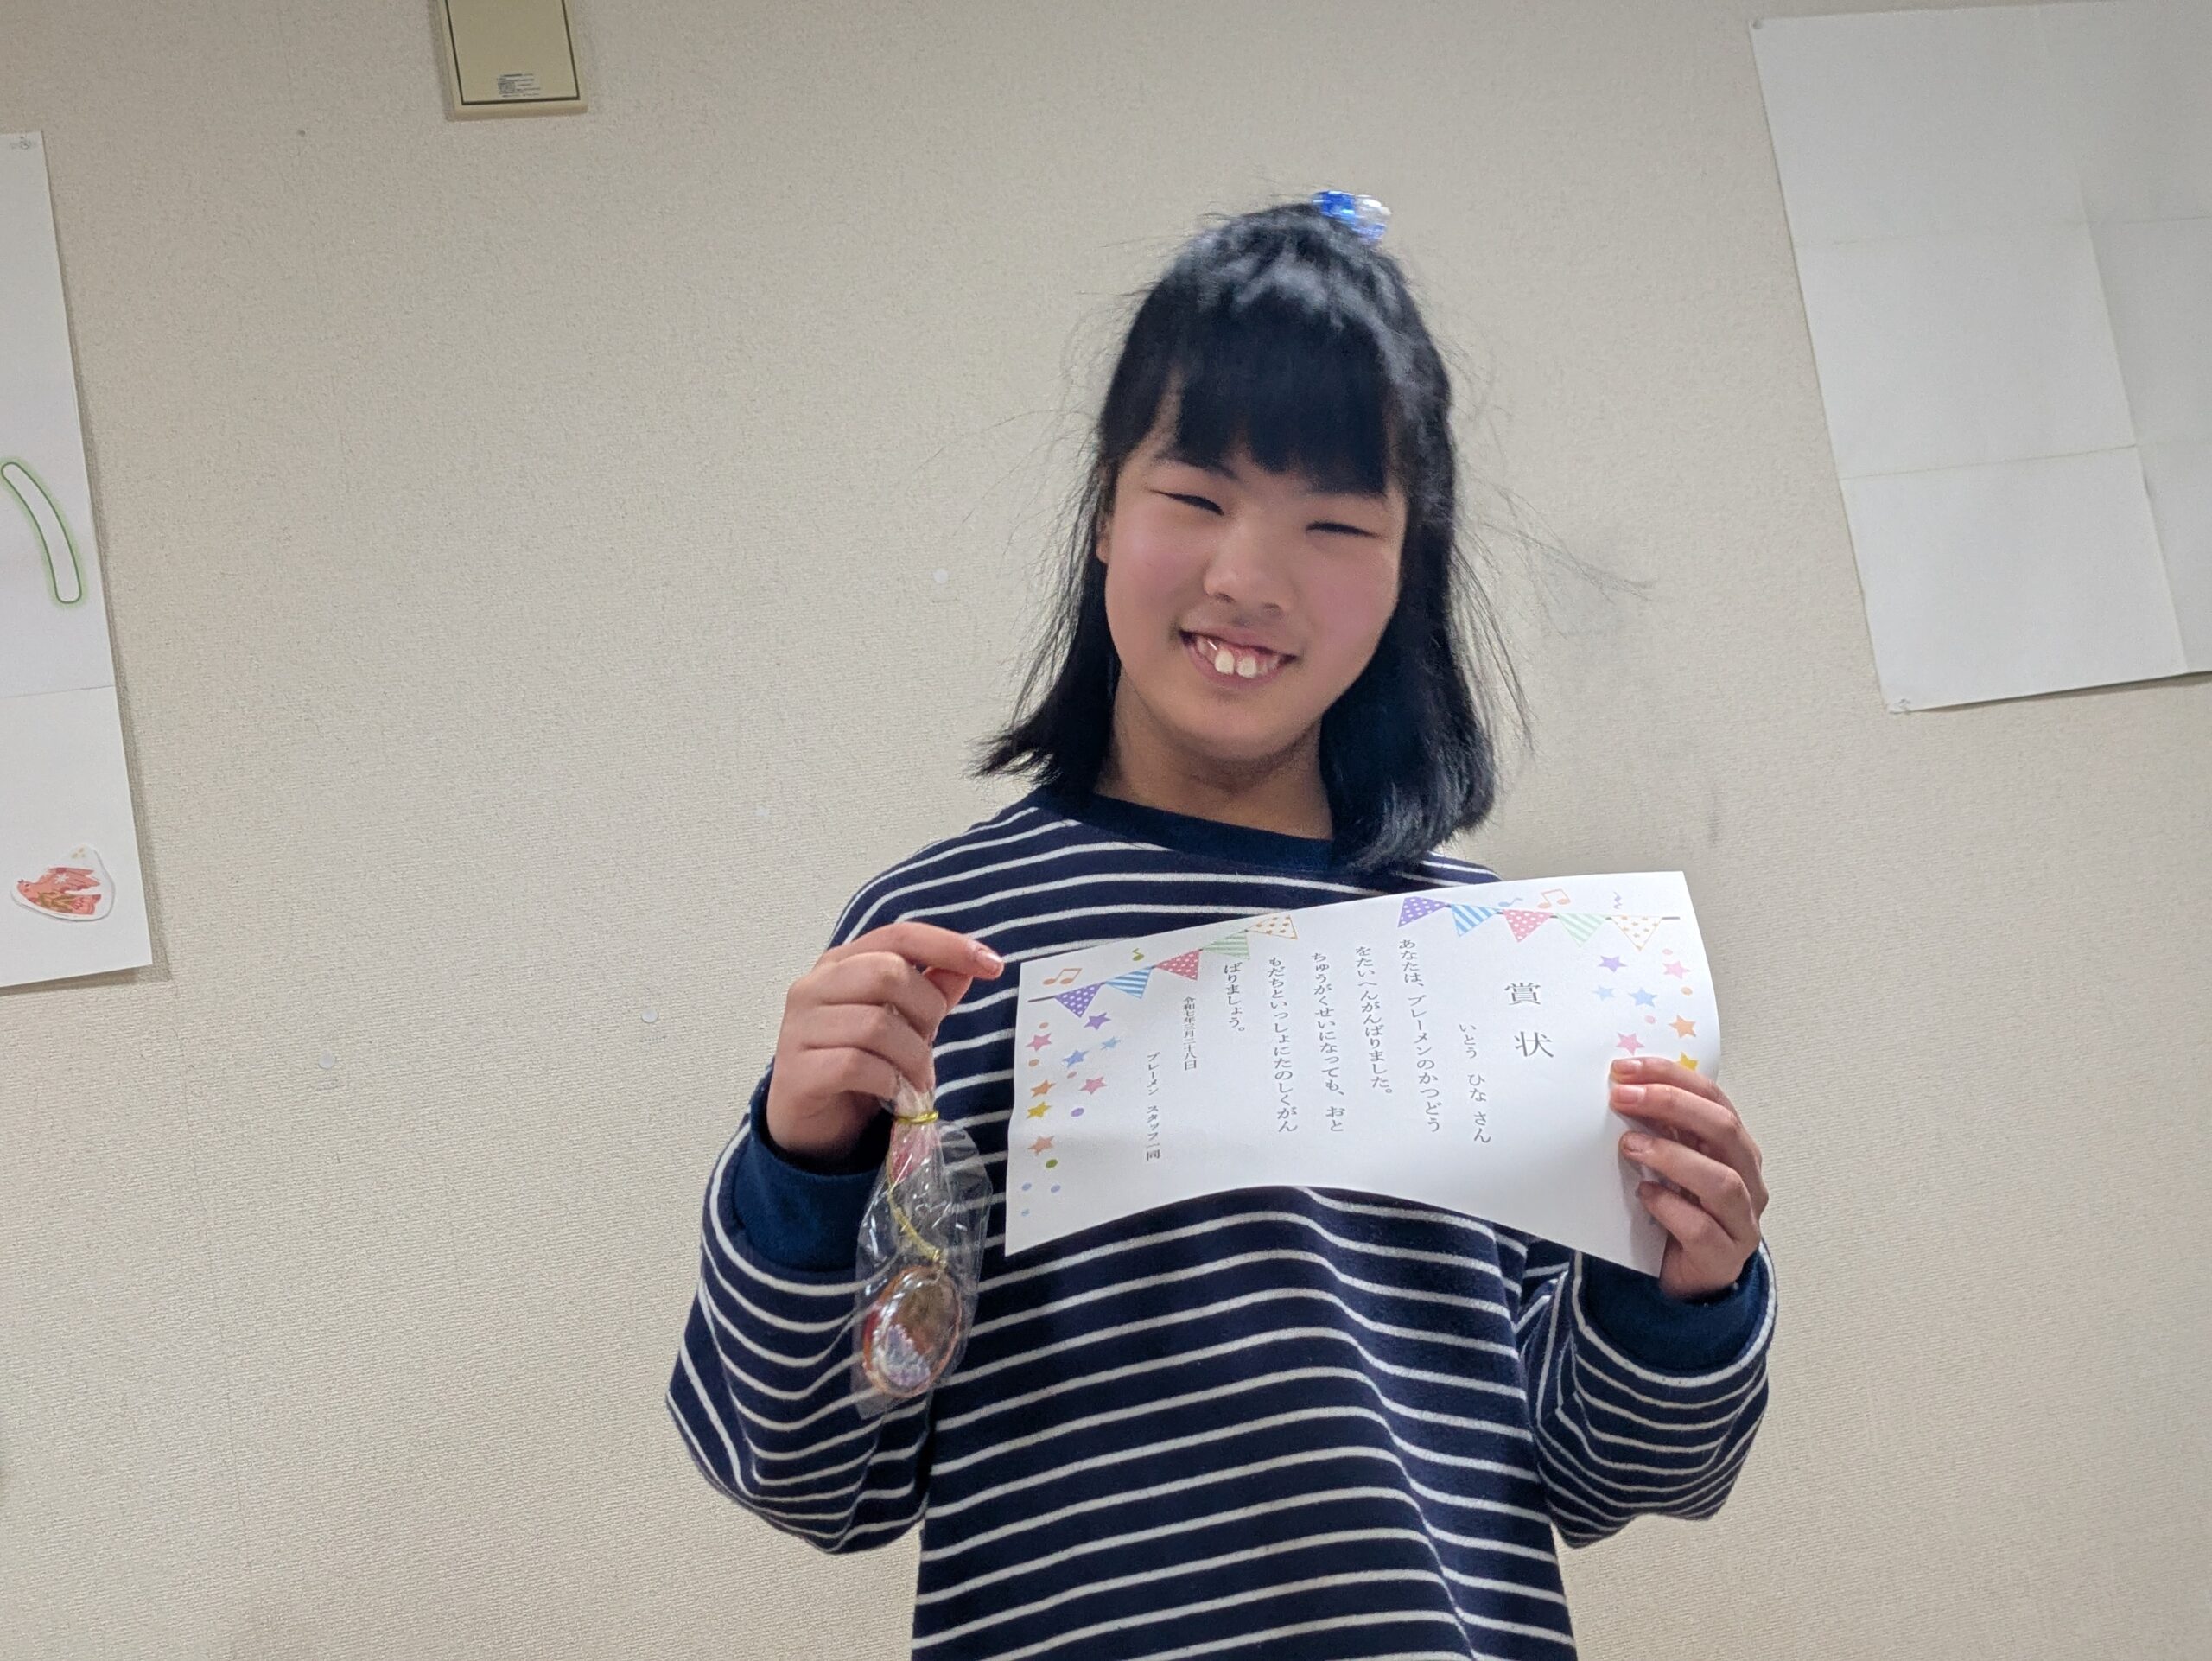 賞状
いとう ひな さん
あなたは、ブレーメンのかつどう
をたいへんがんばりました。
ちゅうがくせいになっても、おと
もだちといっしょにたのしくがん
ばりましょう。
令和七年三月二十八日
ブレーメン スタッフ一同